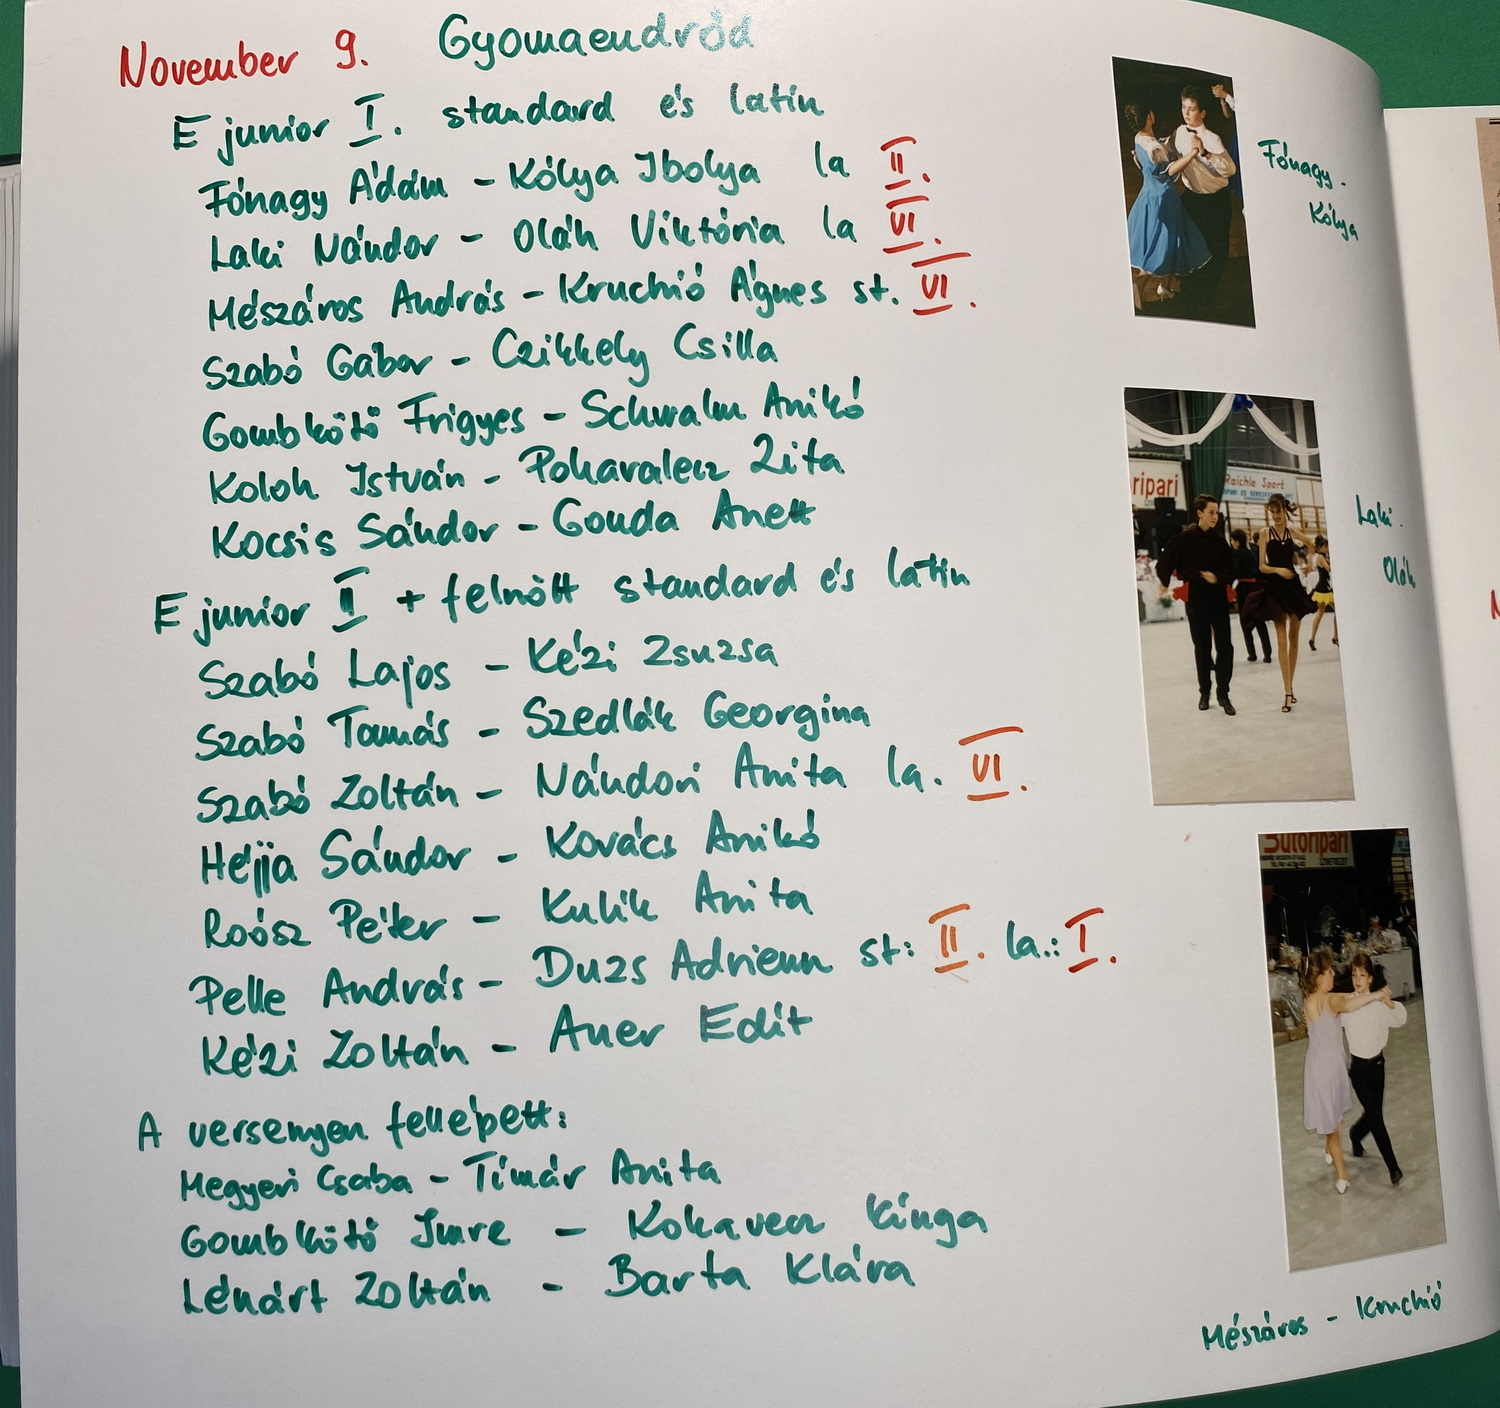 November 9. Gyomaendrőd
E junior I. standard és latin
Fónagy Ádám - Kólya Ibolya la II.
Laki Nándor - Oláh Viktória la VI.
Mészáros András - Kruchió Ágnes st. VI.
Szabó Gábor - Czikkely Csilla
Gombkötő Frigyes - Schwalm Anikó
Koloh István - Poharalecz Zita
Kocsis Sándor - Gouda Anett
E junior II + felnőtt standard és latin
Szabó Lajos - Kézi Zsuzsa
Szabó Tamás - Szedlák Georgina
Szabó Zoltán - Nándori Anita la. VI.
Héjja Sándor - Kovács Anikó
Roósz Péter - Kulik Anita
Pelle András - Duzs Adrienn st: II. la.: I.
Kézi Zoltán - Auer Edit
A versenyen fellépett:
Megyeri Csaba - Tímár Anita
Gombkötő Imre - Kokavecz Kinga
Lénárt Zoltán - Barta Klára
Fónagy -
Kólya
ripari
Raichle Sport
Laki -
Oláh
Butoripari
Mészáros - Kruchió